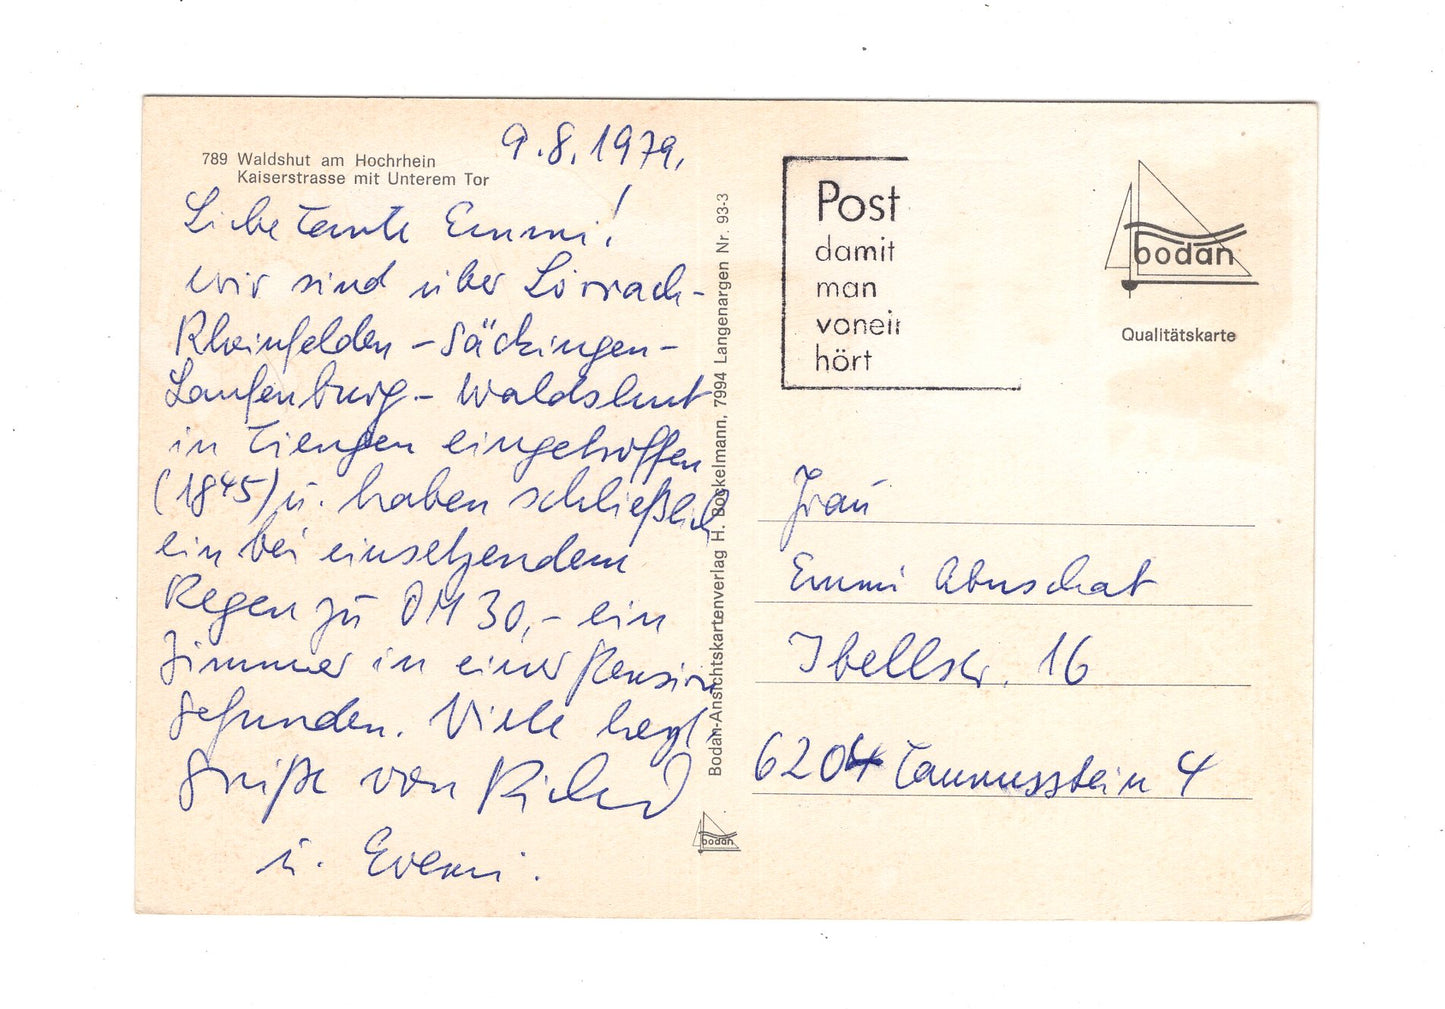 789 Waldshut am Hochrhein
Kaiserstrasse mit Unterem Tor
9.8.1979.
Liebe Tante Emmi!
wir sind über Lörrach-
Rheinfelden - Säckingen-
Laufenburg - Waldshut
in Tiengen eingetroffen
(1845) u. haben schließlich
ein bei einsetzendem
Regen zu DM 30,- ein
Zimmer in einer Pension
gefunden. Viele herzl.
Grüße von
u.
Bodan-Ansichtskartenverlag H. Bockelmann, 7994 Langenargen Nr. 93-3
bodan
Post
damit
man
vonein
hört
bodan
Qualitätskarte
Frau
Emmi Abuschat
Ibellstr. 16
6204 Taunusstein 4